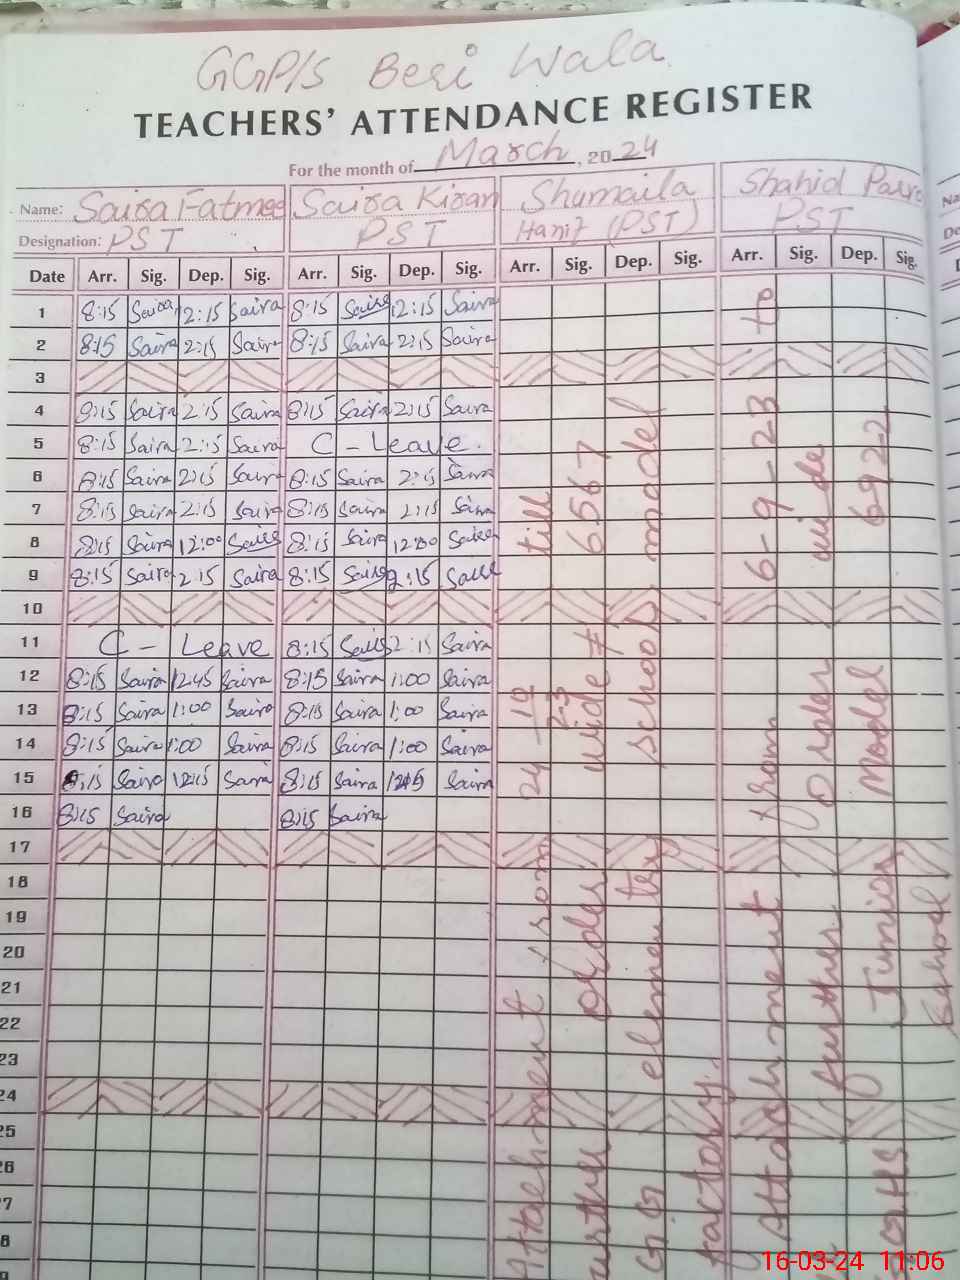 GGP/S Beri Wala
TEACHERS' ATTENDANCE REGISTER
For the month of March, 2024
Name: Saira Fatmee Saira Kiran Shumaila Shahid Parv
Designation: PST PST Hanif (PST) PST
Date Arr. Sig. Dep. Sig. Arr. Sig. Dep. Sig. Arr. Sig. Dep. Sig. Arr. Sig. Dep. Sig.
1 8:15 Saira 12:15 Saira 8:15 Saira 12:15 Saira
2 8:15 Saira 2:15 Saira 8:15 Saira 2:15 Saira
3
4 8:15 Saira 2:15 Saira 8:15 Saira 2:15 Saira
5 8:15 Saira 2:15 Saira C - Leave.
6 8:15 Saira 2:15 Saira 8:15 Saira 2:15 Saira
7 8:15 Saira 2:15 Saira 8:15 Saira 2:15 Saira
8 8:15 Saira 12:00 Saira 8:15 Saira 12:00 Saira
9 8:15 Saira 2:15 Saira 8:15 Saira 2:15 Saira
10
11 C - Leave 8:15 Saira 2:15 Saira
12 8:15 Saira 12:45 Saira 8:15 Saira 1:00 Saira
13 8:15 Saira 1:00 Saira 8:15 Saira 1:00 Saira
14 8:15 Saira 1:00 Saira 8:15 Saira 1:00 Saira
15 8:15 Saira 12:15 Saira 8:15 Saira Saira
16 8:15 Saira 8:15 Saira
17
18
19
20
21
22
23
24
25
26
27
8
Attachment from 24-10-23 till
further order wide # 6567
GG elementry school model
factory.
Attachment from 6-9-23 to
further Order wide
GGHS Junior Model 6922
School
Na
De
16-03-24 11:06